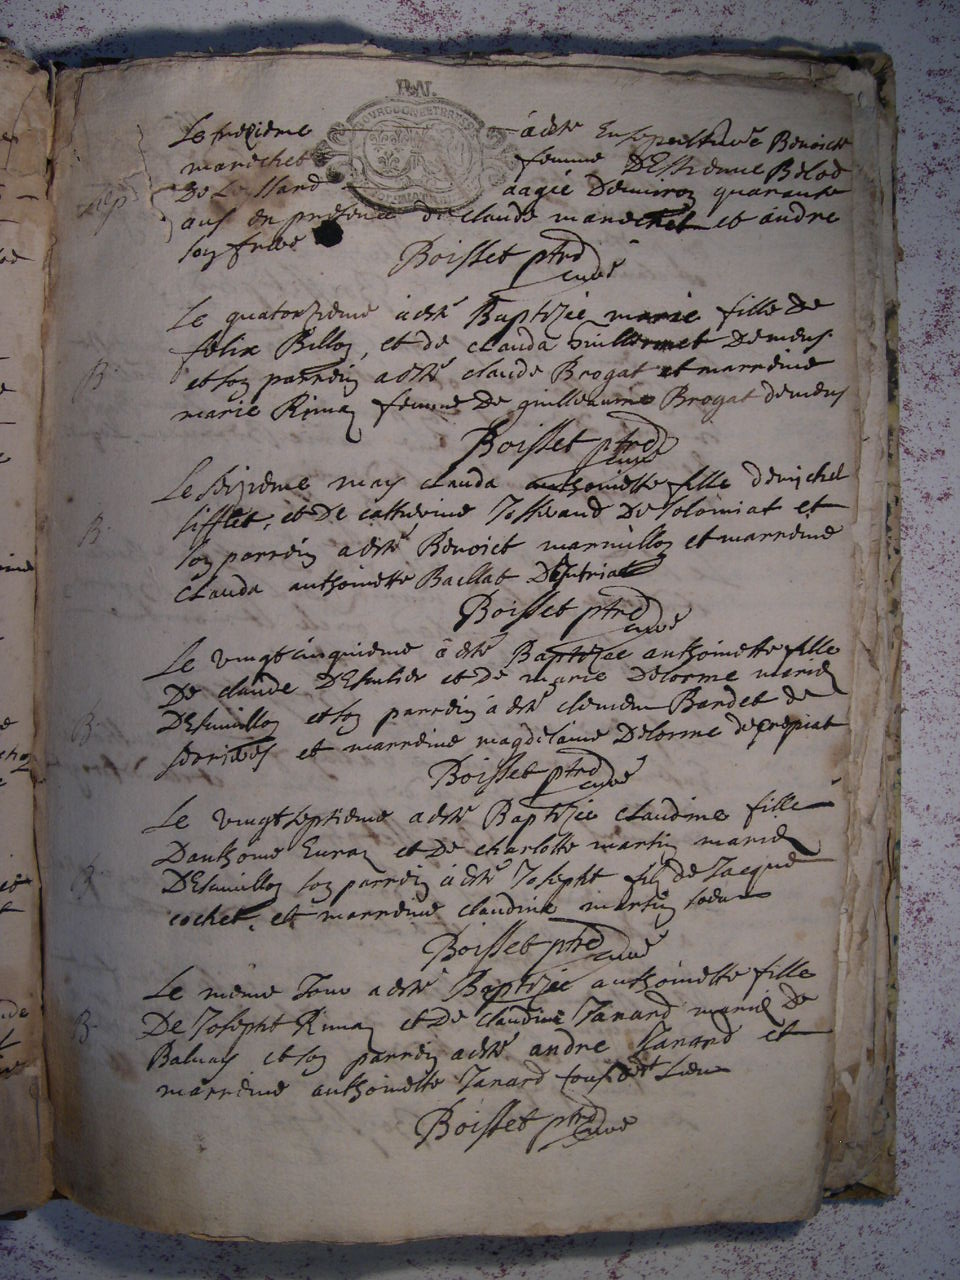 Le treizieme à esté Ensepulturée Benoiste
marechet femme D'Estienne Bélod
De Lessard aagée Demiron quarante
ans en présence de claude marechet et andre
son frere
Boisset ptre curé
Le quatorzieme à esté Baptizée marie fille de
felix Billon, et de clauda Guillermet Demeus
B.
et son parrein a esté claude Brogat et marreine
marie Rimaz femme De guilleaume Brogat demeus
Boisset ptre curé
Le seizieme may clauda anthoinette fille demichel
sifflet, et De catherine Tisserand De solomiat et
B.
son parrein a esté Benoict marmillon et marreine
clauda anthoinette Baillat
Boisset ptre curé
Le vingtcinquieme à esté Baptizée anthoinette fille
De claude et De marie Delorme mariez
B.
et son parrein à esté clement Bardet de
et marreine magdelaine Delorme
Boisset ptre curé
Le vingtseptieme a esté Baptizée claudine fille
Danthoine et De charlotte martin mariez
B.
son parrein à esté Joseph filz de Jacque
cochet, et marreine claudine martin
Boisset ptre curé
Le même Jour a esté Baptizée anthoinette fille
De Joseph Rimaz et De claudine Janard mariez De
B.
Balvay et son parrein a esté andre Janard et
marreine anthoinette Janard tous dudt Lieu
Boisset ptre curé